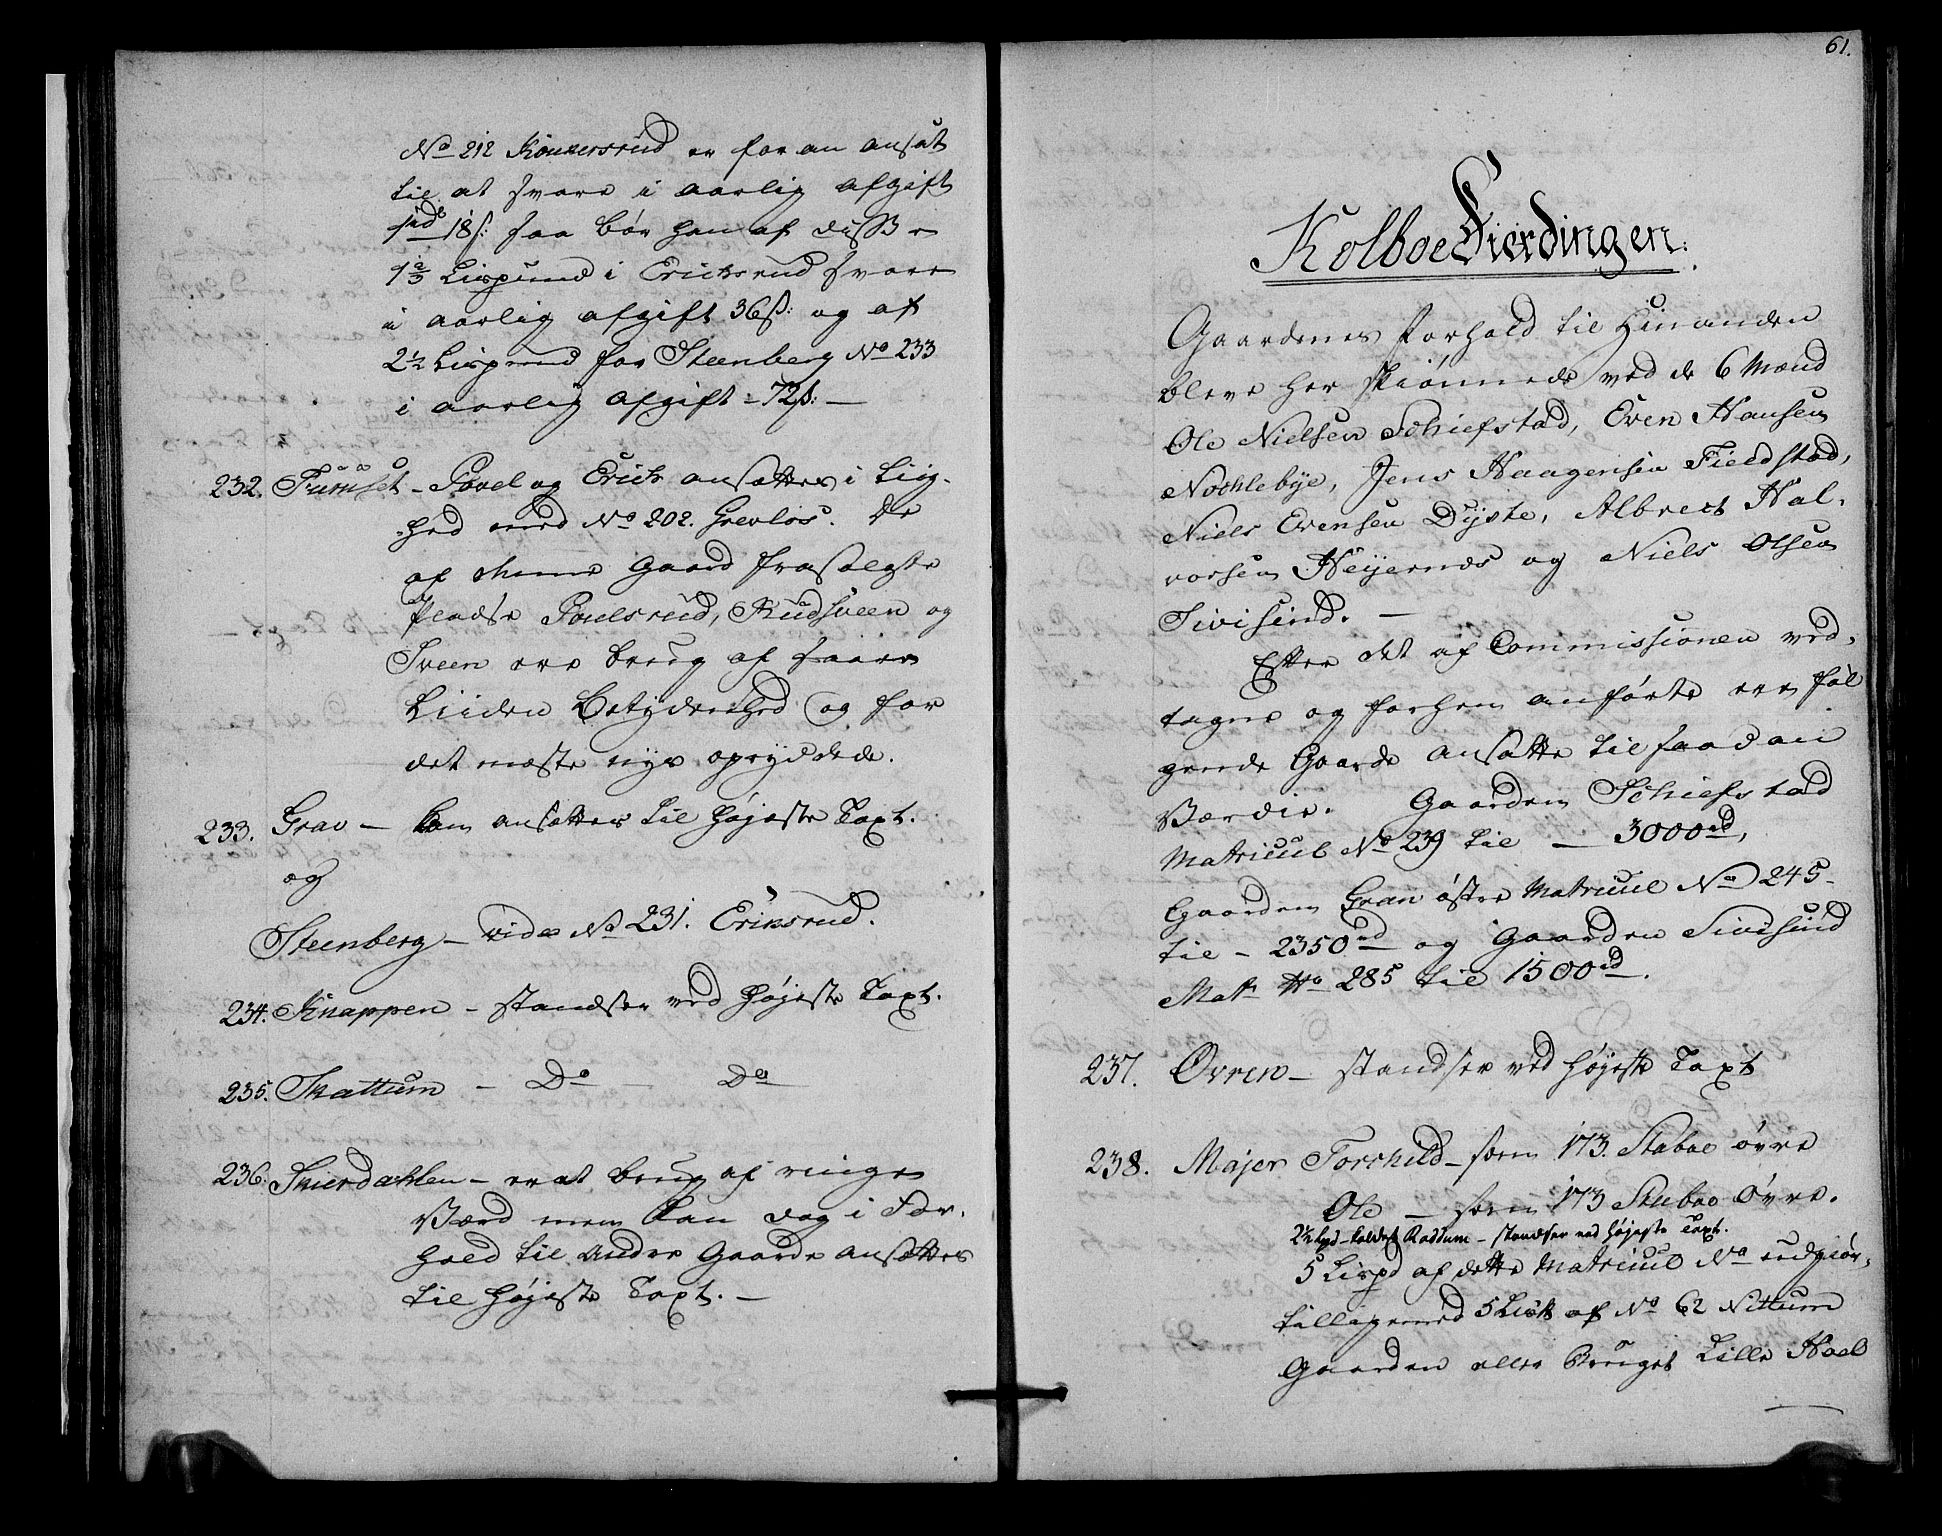 No 212 Konnersrud er foran ansat
til at svare i aarlig afgift
1rd 18s: saa bør han af disse
1 2/3 Lispund i Erichsrud svare
i aarlig afgift 36s: og af
2½ Lispund for Steenberg No 233
i aarlig afgift - 72s: —
232. Furuset - Povel og Erich ansættes i Liig-
hed med No 202. Grevlos. De
af denne Gaard frasolgte
Pladse Poulsrud, Rudsveen og
Sveen ere brug af saare
Liiden Betydenhed og for
det mæste nys opryddede.
233. Grav — kan ansættes til høyeste Taxt.
og
Steenberg — vide No 231. Eriksrud.
234. Knappen - standser ved høyeste Taxt.
235. Skattum - Do — Do
236. Skierdahlen - er et brug af ringe
Værd men kan dog i For-
hold til Andre Gaarde ansættes
til høyeste Taxt. —
61.
Kolboe Fierdingen:
Gaardenes Forhold til hinanden
bleve her skiønnede ved de 6 Mænd
Ole Nielsen Schiefstad, Even Hansen
Nøchlebye, Jens Haagensen Fieldstad,
Niels Evensen Dyste, Albrect Hal-
vorsen Heyernæs og Niels Olsen
Sivisind. —
Efter det af Commissionen ved-
tagne og forhen anførte ere føl
gende Gaarde ansatte til saadan
Værdie. Gaarden Schiefstad
Matricul No 239 til — 3000rd,
Gaarden Gran østre Matricul No 245-
til - 2350rd og Gaarden Sivisind
Matr No 285 til 1500rd.
237. Øvren - standser ved høyeste Taxt
238. Majer Torchild - som 173. Staboe øvre
Ole — som 173 Stuboe Øvre.
2½ Lpd - kaldet Raddum - standser ved høyeste Taxt.
5 Lispd af dette Matricul No udgiør,
tilligemed 5 Lisd af No 62 Nittum
Gaarden eller Bruget Lille Hoel